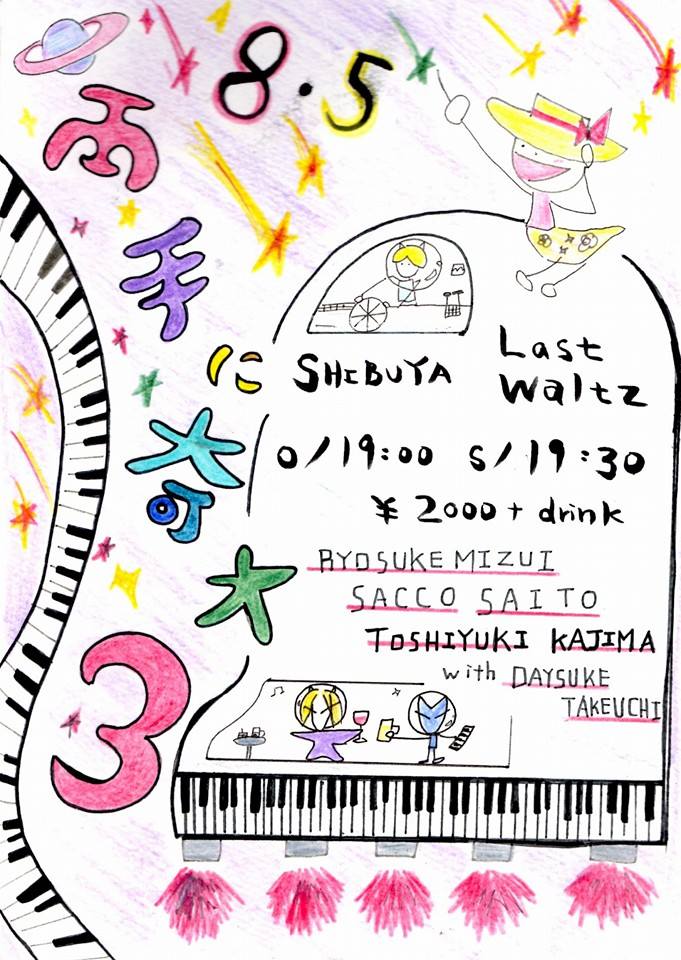 8・5
両手に奇大3
SHIBUYA
Last
Waltz
O/19:00 S/19:30
¥2000+drink
RYOSUKE MIZUI
SACCO SAITO
TOSHIYUKI KAJIMA
with DAYSUKE
TAKEUCHI